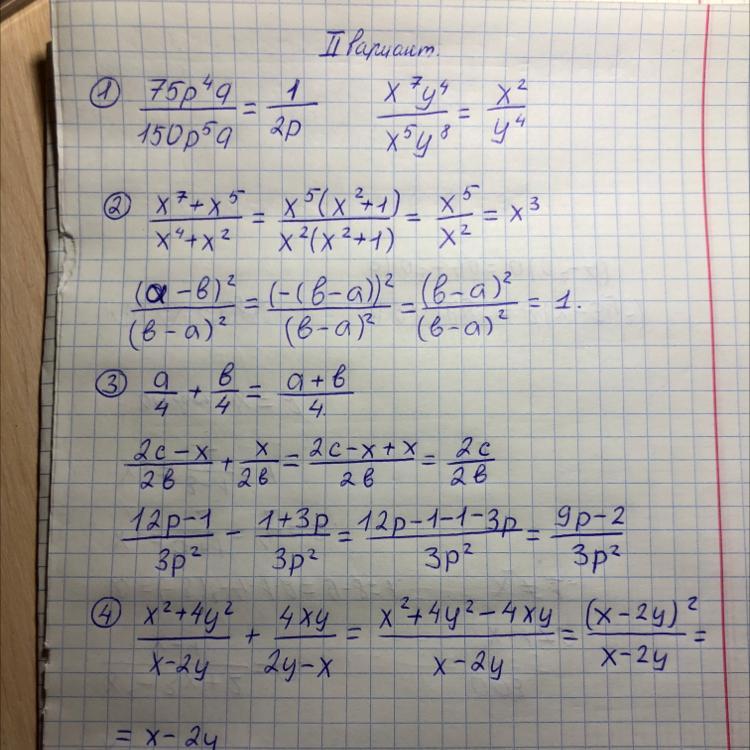 II вариант.
① 75p⁴q/150p⁵q = 1/2p    x⁷y⁴/x⁵y⁸ = x²/y⁴
② (x⁷+x⁵)/(x⁴+x²) = x⁵(x²+1)/x²(x²+1) = x⁵/x² = x³
(а−в)²/(в−а)² = (−(в−а))²/(в−а)² = (в−а)²/(в−а)² = 1.
③ а/4 + в/4 = (а+в)/4.
(2c−x)/2в + x/2в = (2c−x+x)/2в = 2c/2в
(12p−1)/3p² − (1+3p)/3p² = (12p−1−1−3p)/3p² = (9p−2)/3p²
④ (x²+4y²)/(x−2y) + 4xy/(2y−x) = (x²+4y²−4xy)/(x−2y) = (x−2y)²/(x−2y) =
= x−2y